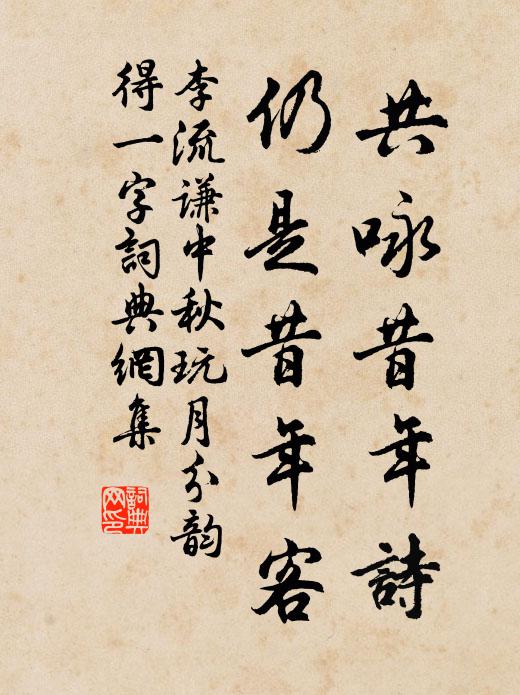 共咏昔年詩
仍是昔年客
李流谦中秋玩月分韵
得一字詞典網集
詞典
网印